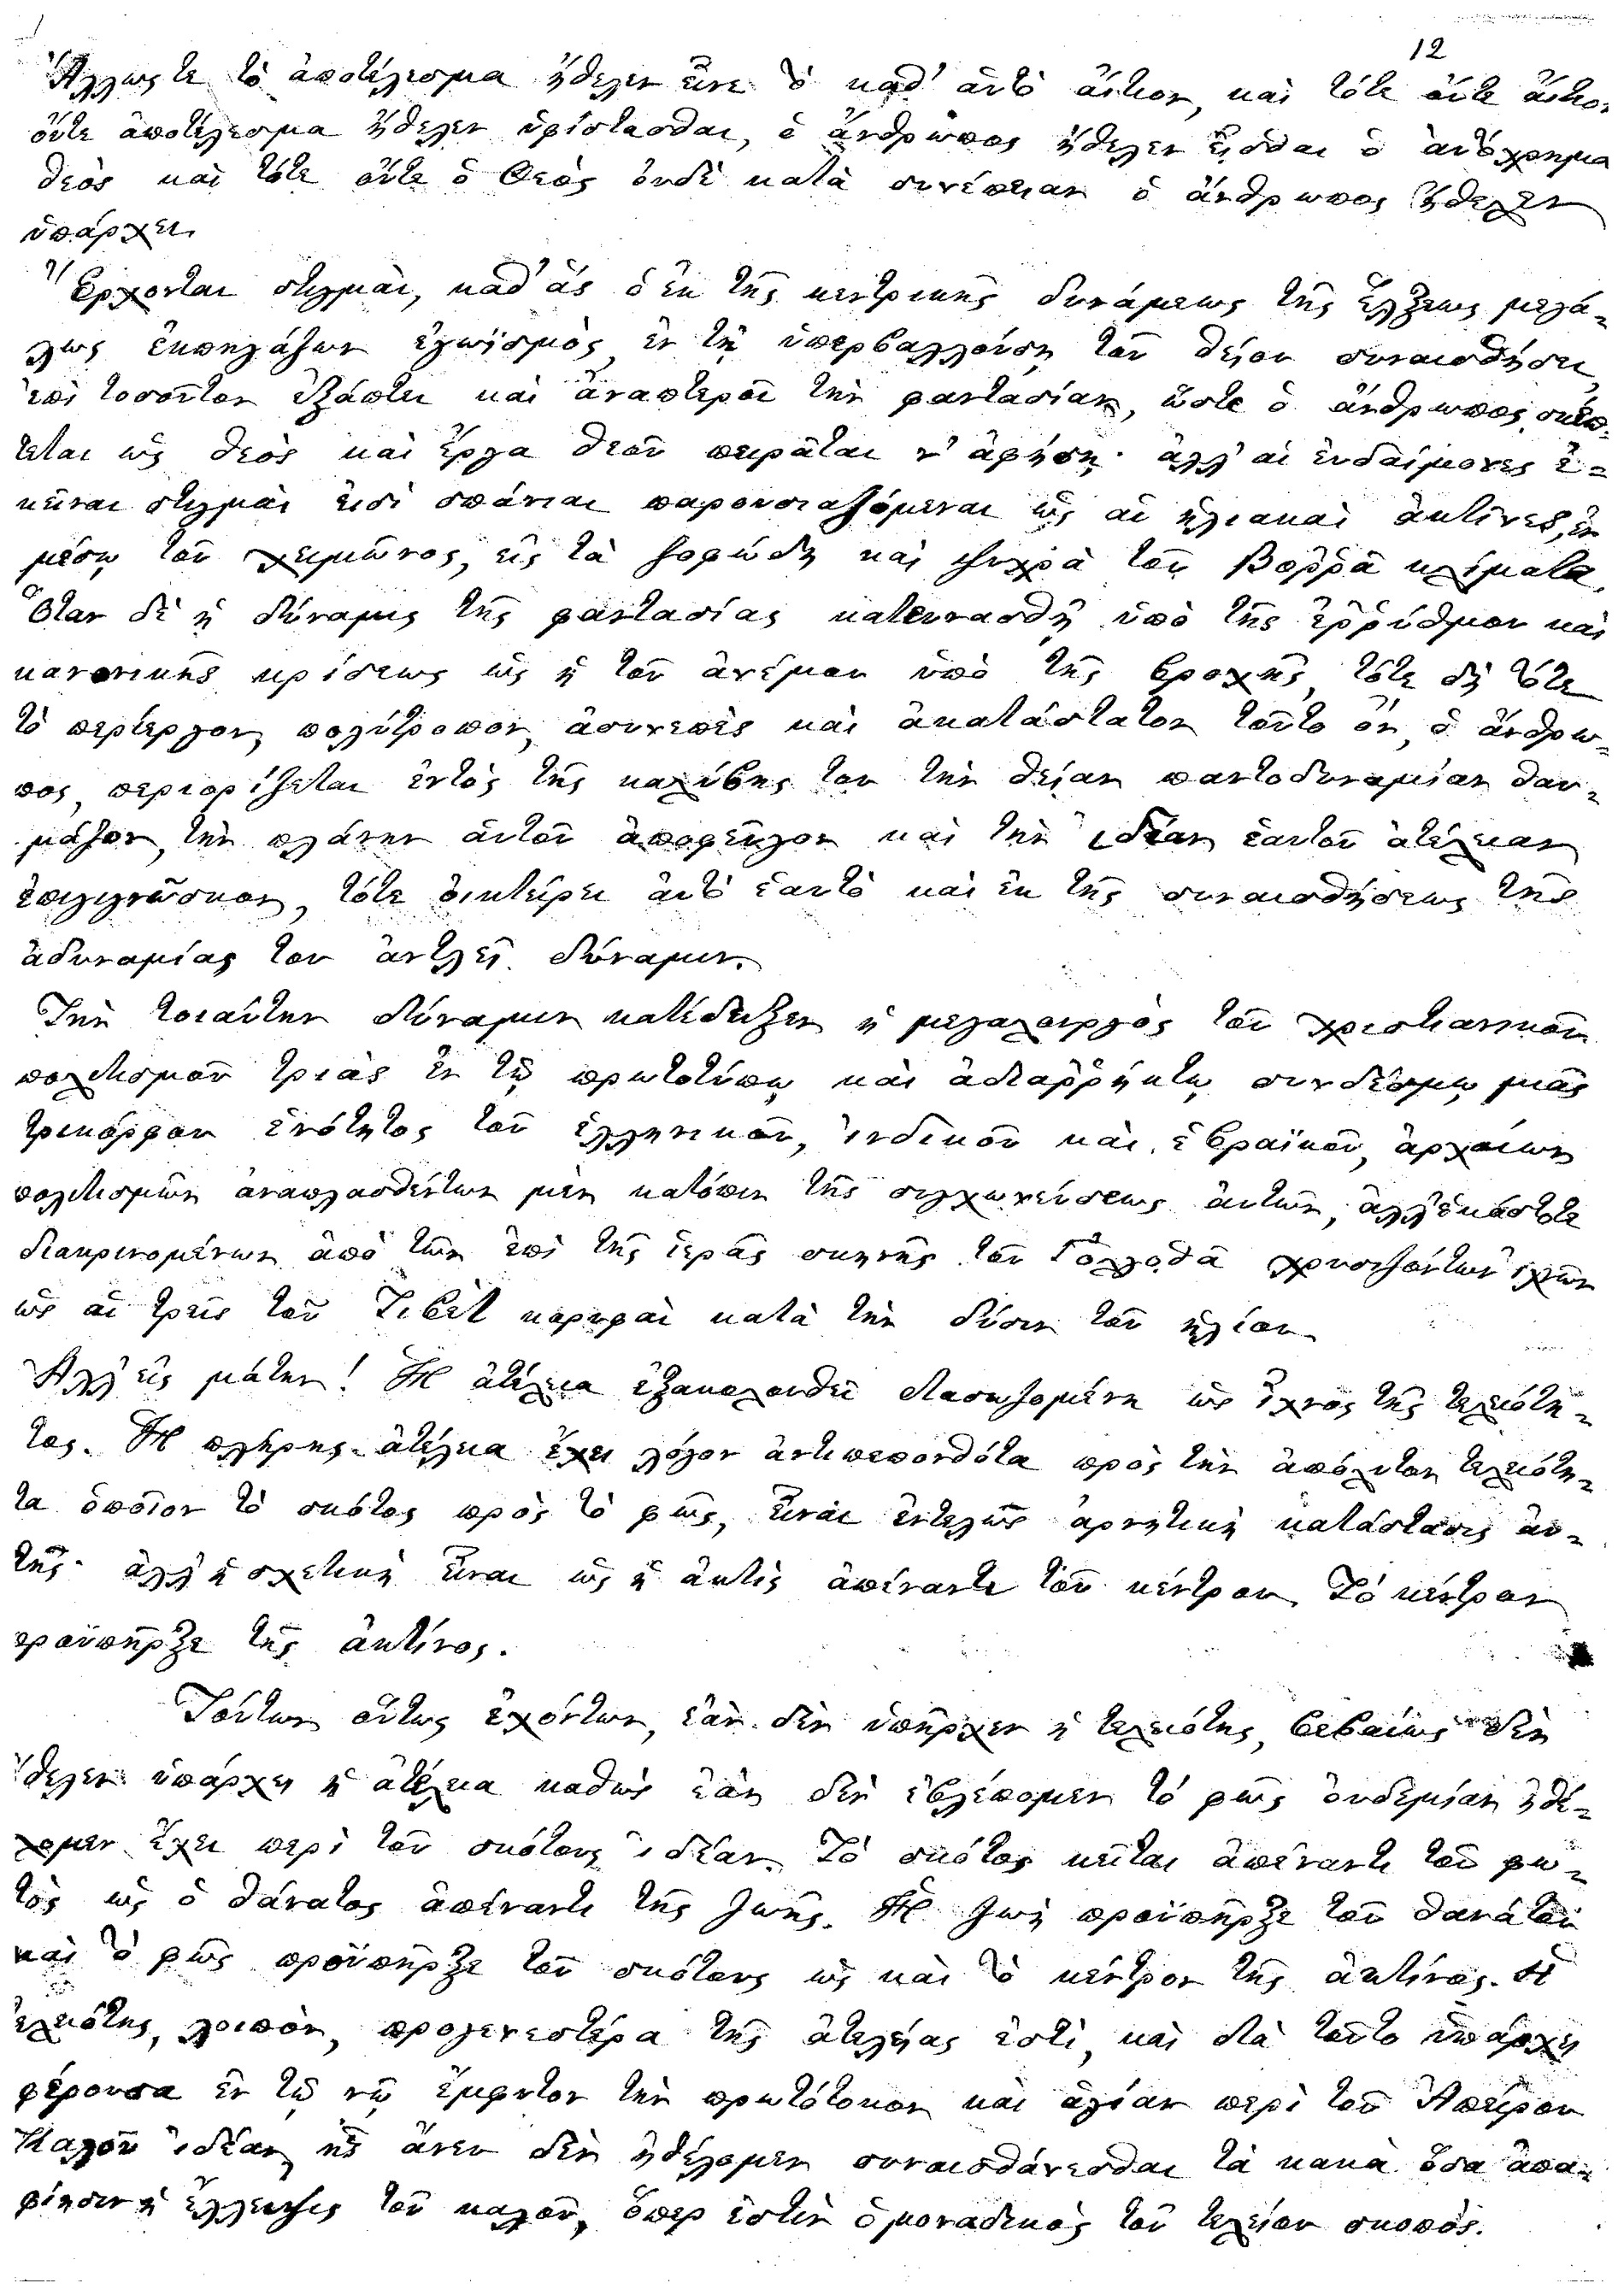 12
Ἄλλως τε τὸ ἀποτέλεσμα ἤθελεν εἶνε τὸ καθ' αὐτὸ αἴτιον, καὶ τότε οὔτε αἴτιον
οὔτε ἀποτέλεσμα ἤθελεν ὑφίστασθαι, ὁ ἄνθρωπος ἤθελεν εἶσθαι ὁ αὐτόχρημα
θεὸς καὶ τότε οὔτε ὁ Θεὸς οὐδὲ κατὰ συνέπειαν ὁ ἄνθρωπος ἤθελεν
ὑπάρχει.
Ἔρχονται στιγμαὶ, καθ' ἃς ὁ ἐκ τῆς κεντρικῆς δυνάμεως τῆς ἕλξεως μεγά-
λως ἐκπηγάζων ἐγωϊσμὸς ἐν τῇ ὑπερβαλλούσῃ τοῦ θείου συναισθήσει,
ἐπὶ τοσοῦτον ἐξάπτει καὶ ἀναπτεροῖ τὴν φαντασίαν, ὥστε ὁ ἄνθρωπος σκέπ-
τεται ὡς θεὸς καὶ ἔργα θεοῦ πειρᾶται ν' ἀφήσῃ· ἀλλ' αἱ εὐδαίμονες ἐ-
κεῖναι στιγμαὶ εἰσὶ σπάνιαι παρουσιαζόμεναι ὡς αἱ ἡλιακαὶ ἀκτῖνες, ἐν
μέσῳ τοῦ χειμῶνος, εἰς τὰ ζοφώδη καὶ ψυχρὰ τοῦ Βορρᾶ κλίματα.
Ὅταν δὲ ἡ δύναμις τῆς φαντασίας κατευνασθῇ ὑπὸ τῆς ἐῤῥύθμου καὶ
κανονικῆς κρίσεως ὡς ἡ τοῦ ἀνέμου ὑπὸ τῆς βροχῆς, τότε δὴ τότε
τὸ περίεργον, πολύτροπον, ἀσυνεπὲς καὶ ἀκατάστατον τοῦτο ὂν, ὁ ἄνθρω-
πος, περιορίζεται ἐντὸς τῆς καλύβης του τὴν θείαν παντοδυναμίαν θαυ-
μάζον, τὴν πλάνην αὐτοῦ ἀποφεῦγον καὶ τὴν ἰδίαν ἑαυτοῦ ἀτέλειαν
ἐπιγιγνῶσκον, τότε οἰκτείρει αὐτὸ ἑαυτὸ καὶ ἐκ τῆς συναισθήσεως τῆς
ἀδυναμίας του ἀντλεῖ δύναμιν.
Τὴν τοιαύτην δύναμιν κατέδειξεν ἡ μεγαλουργὸς τοῦ χριστιανικοῦ
πολιτισμοῦ τριὰς ἐν τῷ πρωτοτύπῳ καὶ ἀδιαῤῥήκτῳ συνδέσμῳ μιᾶς
τριμόρφου ἑνότητος τοῦ ἑλληνικοῦ, ἰνδικοῦ καὶ ἑβραϊκοῦ, ἀρχαίων
πολιτισμῶν ἀναπλασθέντων μὲν κατόπιν τῆς συγχωνεύσεως αὐτῶν, ἀλλ' ἑκάστοτε
διακρινομένων ἀπὸ τῶν ἐπὶ τῆς ἱερᾶς σκηνῆς τοῦ Γολγοθᾶ χρυσιζόντων ἰχνῶν
ὡς αἱ τρεῖς τοῦ Τιβὲτ κορυφαὶ κατὰ τὴν δύσιν τοῦ ἡλίου.
Ἀλλ' εἰς μάτην! Ἡ ἀτέλεια ἐξακολουθεῖ διασωζομένη ὡς ἴχνος τῆς τελειότη-
τος. Ἡ πλήρης ἀτέλεια ἔχει λόγον ἀντιπεπονθότα πρὸς τὴν ἀπόλυτον τελειότη-
τα ὁποῖον τὸ σκότος πρὸς τὸ φῶς, εἶναι ἐντελῶς ἀρνητικὴ κατάστασις αὐ-
τῆς· ἀλλ' ἡ σχετικὴ εἶναι ὡς ἡ ἀκτὶς ἀπέναντι τοῦ κέντρου. Τὸ κέντρον
προϋπῆρξε τῆς ἀκτίνος.
Τούτων οὕτως ἐχόντων, ἐὰν δὲν ὑπῆρχεν ἡ τελειότης, βεβαίως δὲν
ἤθελεν ὑπάρχει ἡ ἀτέλεια καθὼς ἐὰν δὲν ἐβλέπομεν τὸ φῶς οὐδεμίαν ἠθέ-
λομεν ἔχει περὶ τοῦ σκότους ἰδέαν. Τὸ σκότος κεῖται ἀπέναντι τοῦ φω-
τὸς ὡς ὁ θάνατος ἀπέναντι τῆς ζωῆς. Ἡ ζωὴ προϋπῆρξε τοῦ θανάτου
καὶ τὸ φῶς προϋπῆρξε τοῦ σκότους ὡς καὶ τὸ κέντρον τῆς ἀκτίνος. Ἡ
τελειότης, λοιπὸν, προγενεστέρα τῆς ἀτελείας ἐστὶ, καὶ διὰ τοῦτο ὑπάρχει
φέρουσα ἐν τῷ νῷ ἔμφυτον τὴν πρωτότοκον καὶ ἁγίαν περὶ τοῦ Ἀπείρου
Καλοῦ ἰδέαν ἧς ἄνευ δὲν ἠθέλομεν συναισθάνεσθαι τὰ κακὰ ὅσα ἀπο-
φέρει ἡ ἔλλειψις τοῦ καλοῦ, ὅπερ ἐστὶν ὁ μοναδικὸς τοῦ τελείου σκοπός.